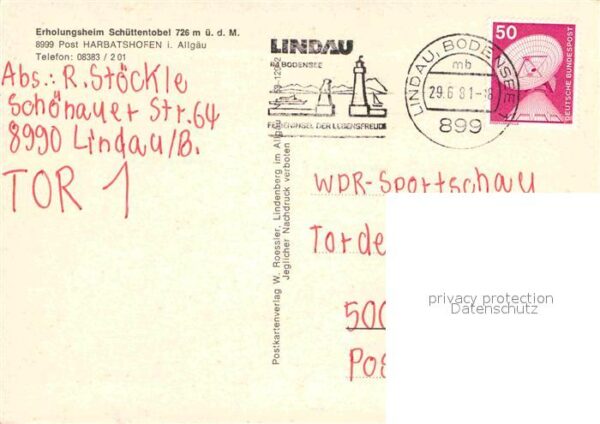 Erholungsheim Schüttentobel 726 m ü. d. M.
8999 Post HARBATSHOFEN i. Allgäu
Telefon: 08383 / 201
Abs.: R. Stöckle
Schönauer Str. 64
8990 Lindau/B.
TOR 1
LINDAU
IM BODENSEE
FERIENINSEL DER LEBENSFREUDE
LINDAU, BODENSEE
mb
29.6.81-18
899
50
DEUTSCHE BUNDESPOST
Postkartenverlag W. Roessler, Lindenberg im Allgäu
Jeglicher Nachdruck verboten
WDR-Sportschau
Torde
500
Pos
privacy protection
Datenschutz